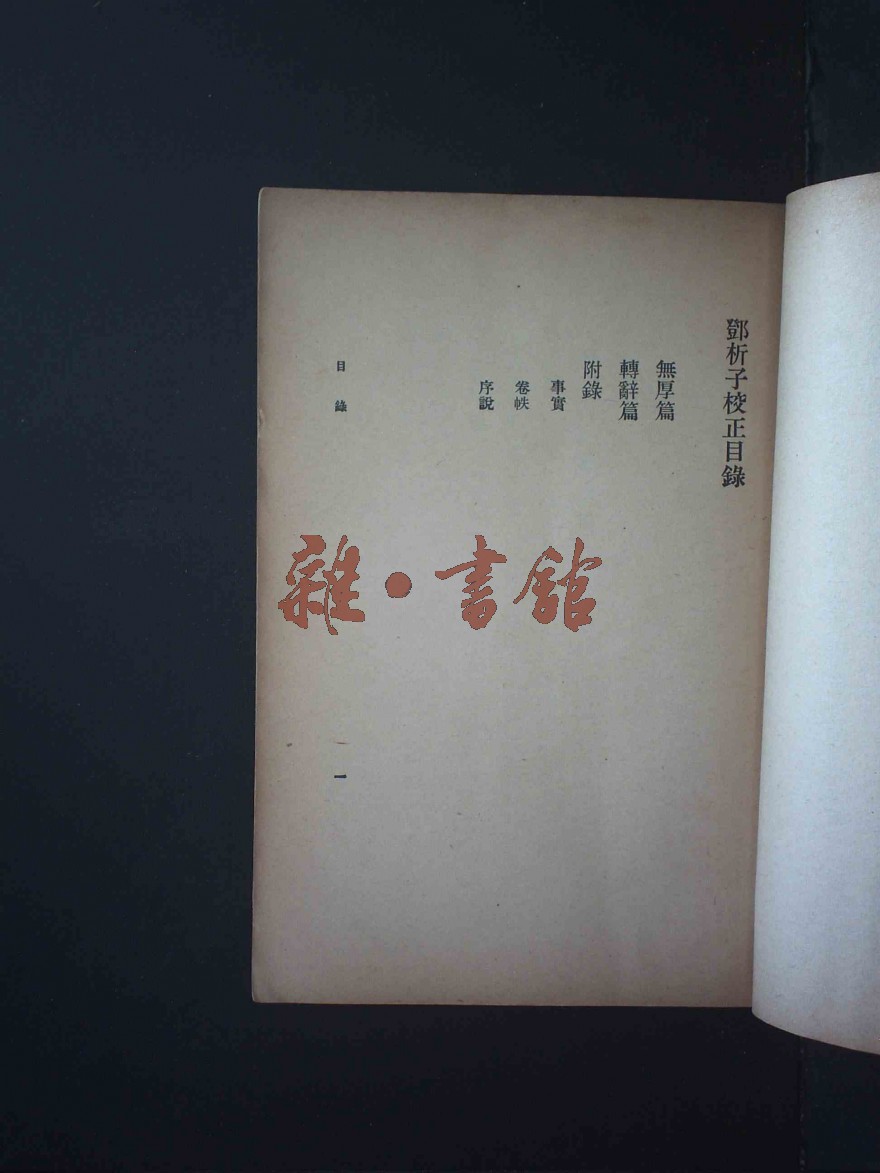 鄧析子校正目錄
無厚篇
轉辭篇
附錄
事實
卷帙
序說
目錄
一
雜·書館